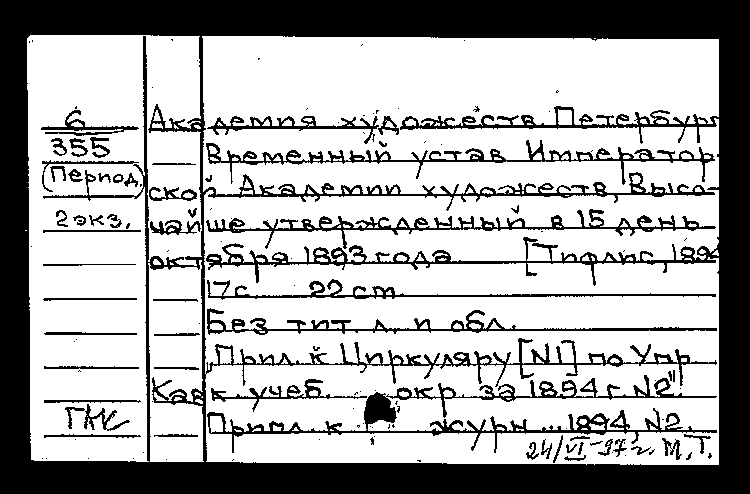 6
355
(Период)
2 экз.
Академия художеств. Петербург
Временный устав Император-
ской Академии художеств, Высо-
чайше утвержденный в 15 день
октября 1893 года [Тифлис, 1894
17 с. 22 cm.
Без тит. л. и обл.
„Прил. к Циркуляру [N1] по Упр
Кавк учеб. окр. за 1894 г. N2".
Прил. к журн... 1894, N2.
24/VI-97 г. М.Т.